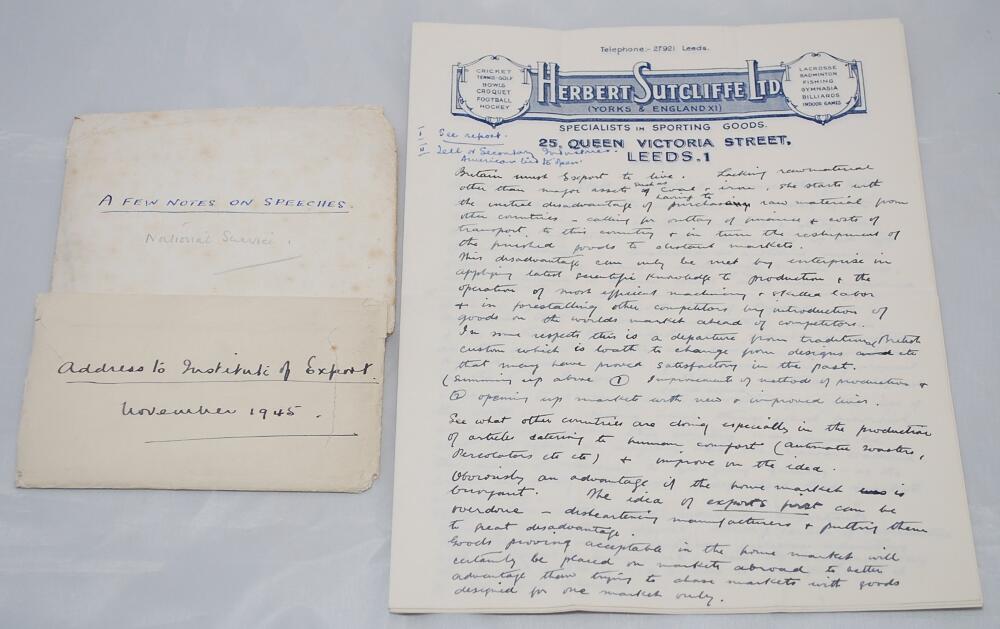 A FEW NOTES ON SPEECHES.
National Service.
Address to Institute of Export.
November 1945.
Telephone:- 27921 Leeds.
CRICKET
TENNIS-GOLF
BOWLS
CROQUET
FOOTBALL
HOCKEY
HERBERT SUTCLIFFE LTD.
(YORKS & ENGLAND XI)
LACROSSE
BADMINTON
FISHING
GYMNASIA
BILLIARDS
INDOOR GAMES
SPECIALISTS IN SPORTING GOODS.
25, QUEEN VICTORIA STREET,
LEEDS.1
I See report.
II Tell of Secondary Industries.
American
Britain must Export to live. Lacking raw material
other than major assets such as coal & iron, she starts with
the initial disadvantage of having to purchase raw material from
other countries - calling for outlay of finance & costs of
transport, to this country & in turn the reshipment of
the finished goods to distant markets.
This disadvantage can only be met by enterprise in
applying latest scientific knowledge to production & the
operation of most efficient machinery & skilled labor
& in forestalling other competitors by introduction of
goods on the worlds market ahead of competitors.
In some respects this is a departure from tradition, British
custom which is loath to change from designs etc
that may have proved satisfactory in the past.
(Summing up above ① Improvement of method of production &
② opening up markets with new & improved lines.
See what other countries are doing especially in the production
of articles catering to human comfort (automatic toasters,
Percolators etc etc) & improve on the idea.
Obviously an advantage if the home market is
buoyant. The idea of exports first can be
overdone - disheartening manufacturers & putting them
to great disadvantage.
Goods proving acceptable in the home market will
certainly be placed on markets abroad to better
advantage than trying to chase markets with goods
designed for one market only.